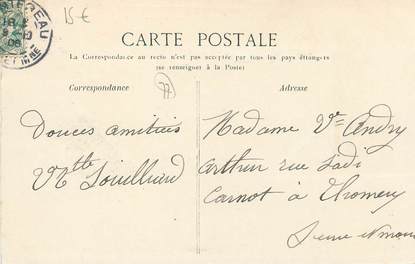 15 €
CARTE POSTALE
La Correspondance au recto n'est pas acceptée par tous les pays étrangers
(se renseigner à la Poste)
Correspondance
77
Adresse
Douces amitiés
Madame Vve Andry
Arthur rue Sadi
Carnot à Thomery
Seine et Marne